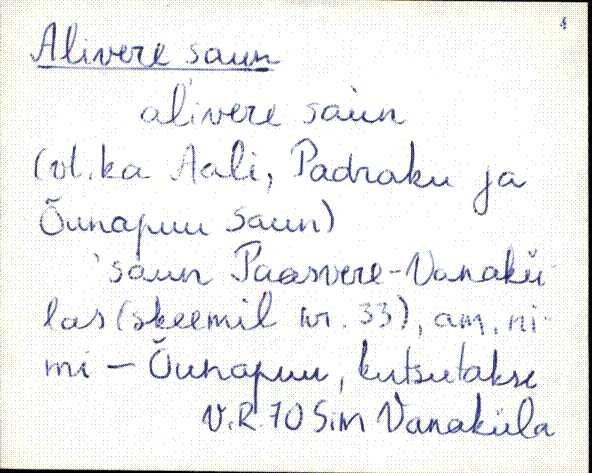 Alivere saun
alivere saun
(vt. ka Aali, Padraku ja
Õunapuu saun)
saun Paasvere-Vanakü-
las (skeemil nr. 33), am. ni-
mi – Õunapuu, kutsutakse
V.R. 70 Sim Vanaküla